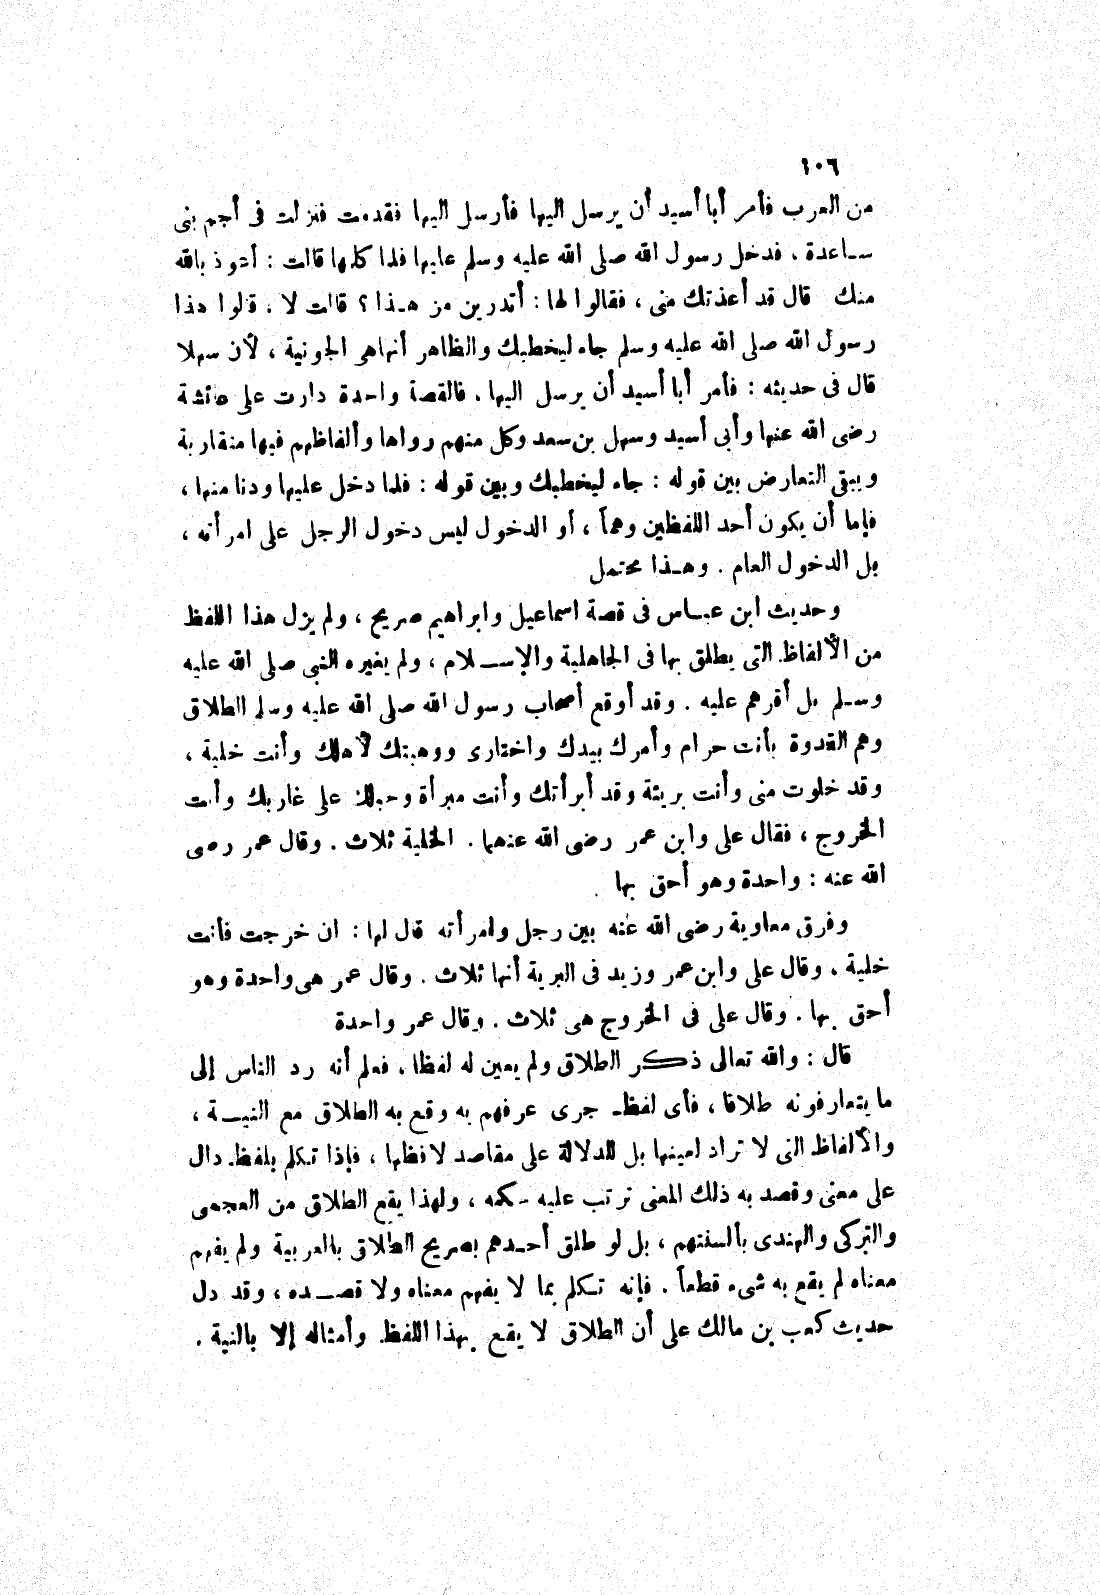 ١٠٦
من العرب فأمر أبا أسيد أن يرسل اليها فأرسل اليها فقدمت فنزلت فى أجم بنى
ساعدة ، فدخل رسول الله صلى الله عليه وسلم عليها فلما كلمها قالت : أعوذ بالله
منك قال قد أعذتك منى ، فقالوا لها : أتدرين من هـذا ؟ قالت لا ، قالوا هذا
رسول الله صلى الله عليه وسلم جاء ليخطبك والظاهر أنها هى الجونية ، لأن سهلا
قال فى حديثه : فأمر أبا أسيد أن يرسل اليها . فالقصة واحدة دارت على عائشة
رضى الله عنها وأبى أسيد وسهل بن سعد وكل منهم رواها وألفاظهم فيها متقاربة
ويبقى التعارض بين قوله : جاء ليخطبك وبين قوله : فلما دخل عليها ودنا منها ،
فإما أن يكون أحد اللفظين وهماً ، أو الدخول ليس دخول الرجل على امرأته ،
بل الدخول العام . وهـذا محتمل
وحديث ابن عبـاس فى قصة اسماعيل وابراهيم صريح ، ولم يزل هذا اللفظ
من الألفاظ التى يطلق بها فى الجاهلية والإسـلام ، ولم يغيره النبى صلى الله عليه
وسـلم بل أقرهم عليه . وقد أوقع أصحاب رسول الله صلى الله عليه وسلم الطلاق
وهم القدوة بأنت حرام وأمرك بيدك واختارى ووهبتك لأهلك وأنت خلية ،
وقد خلوت منى وأنت بريئة وقد أبرأتك وأنت مبرأة وحبلك على غاربك وأنت
الخروج ، فقال على وابن عمر رضى الله عنهما . الخلية ثلاث . وقال عمر رضى
الله عنه : واحدة وهو أحق بها .
وفرق معاوية رضى الله عنه بين رجل وامرأته قال لها : ان خرجت فأنت
خلية ، وقال على وابن عمر وزيد فى البرية أنها ثلاث . وقال عمر هى واحدة وهو
أحق بها . وقال على فى الخروج هى ثلاث . وقال عمر واحدة
قال : والله تعالى ذكـر الطلاق ولم يعين له لفظا ، فعلم أنه رد الناس إلى
ما يتعارفونه طلاقا ، فأى لفظ جرى عرفهم به وقع به الطلاق مع النيـة ،
والألفاظ التى لا تراد لعينها بل للدلالة على مقاصد لافظها ، فإذا تكلم بلفظ دال
على معنى وقصد به ذلك المعنى ترتب عليه حكمه ، ولهذا يقع الطلاق من العجمى
والتركى والهندى بألسنتهم ، بل لو طلق أحـدهم بصريح الطلاق بالعربية ولم يفهم
معناه لم يقع به شىء قطعاً . فإنه تكلم بما لا يفهم معناه ولا قصـده ، وقد دل
حديث كعب بن مالك على أن الطلاق لا يقع بهذا اللفظ وأمثاله إلا بالنية .